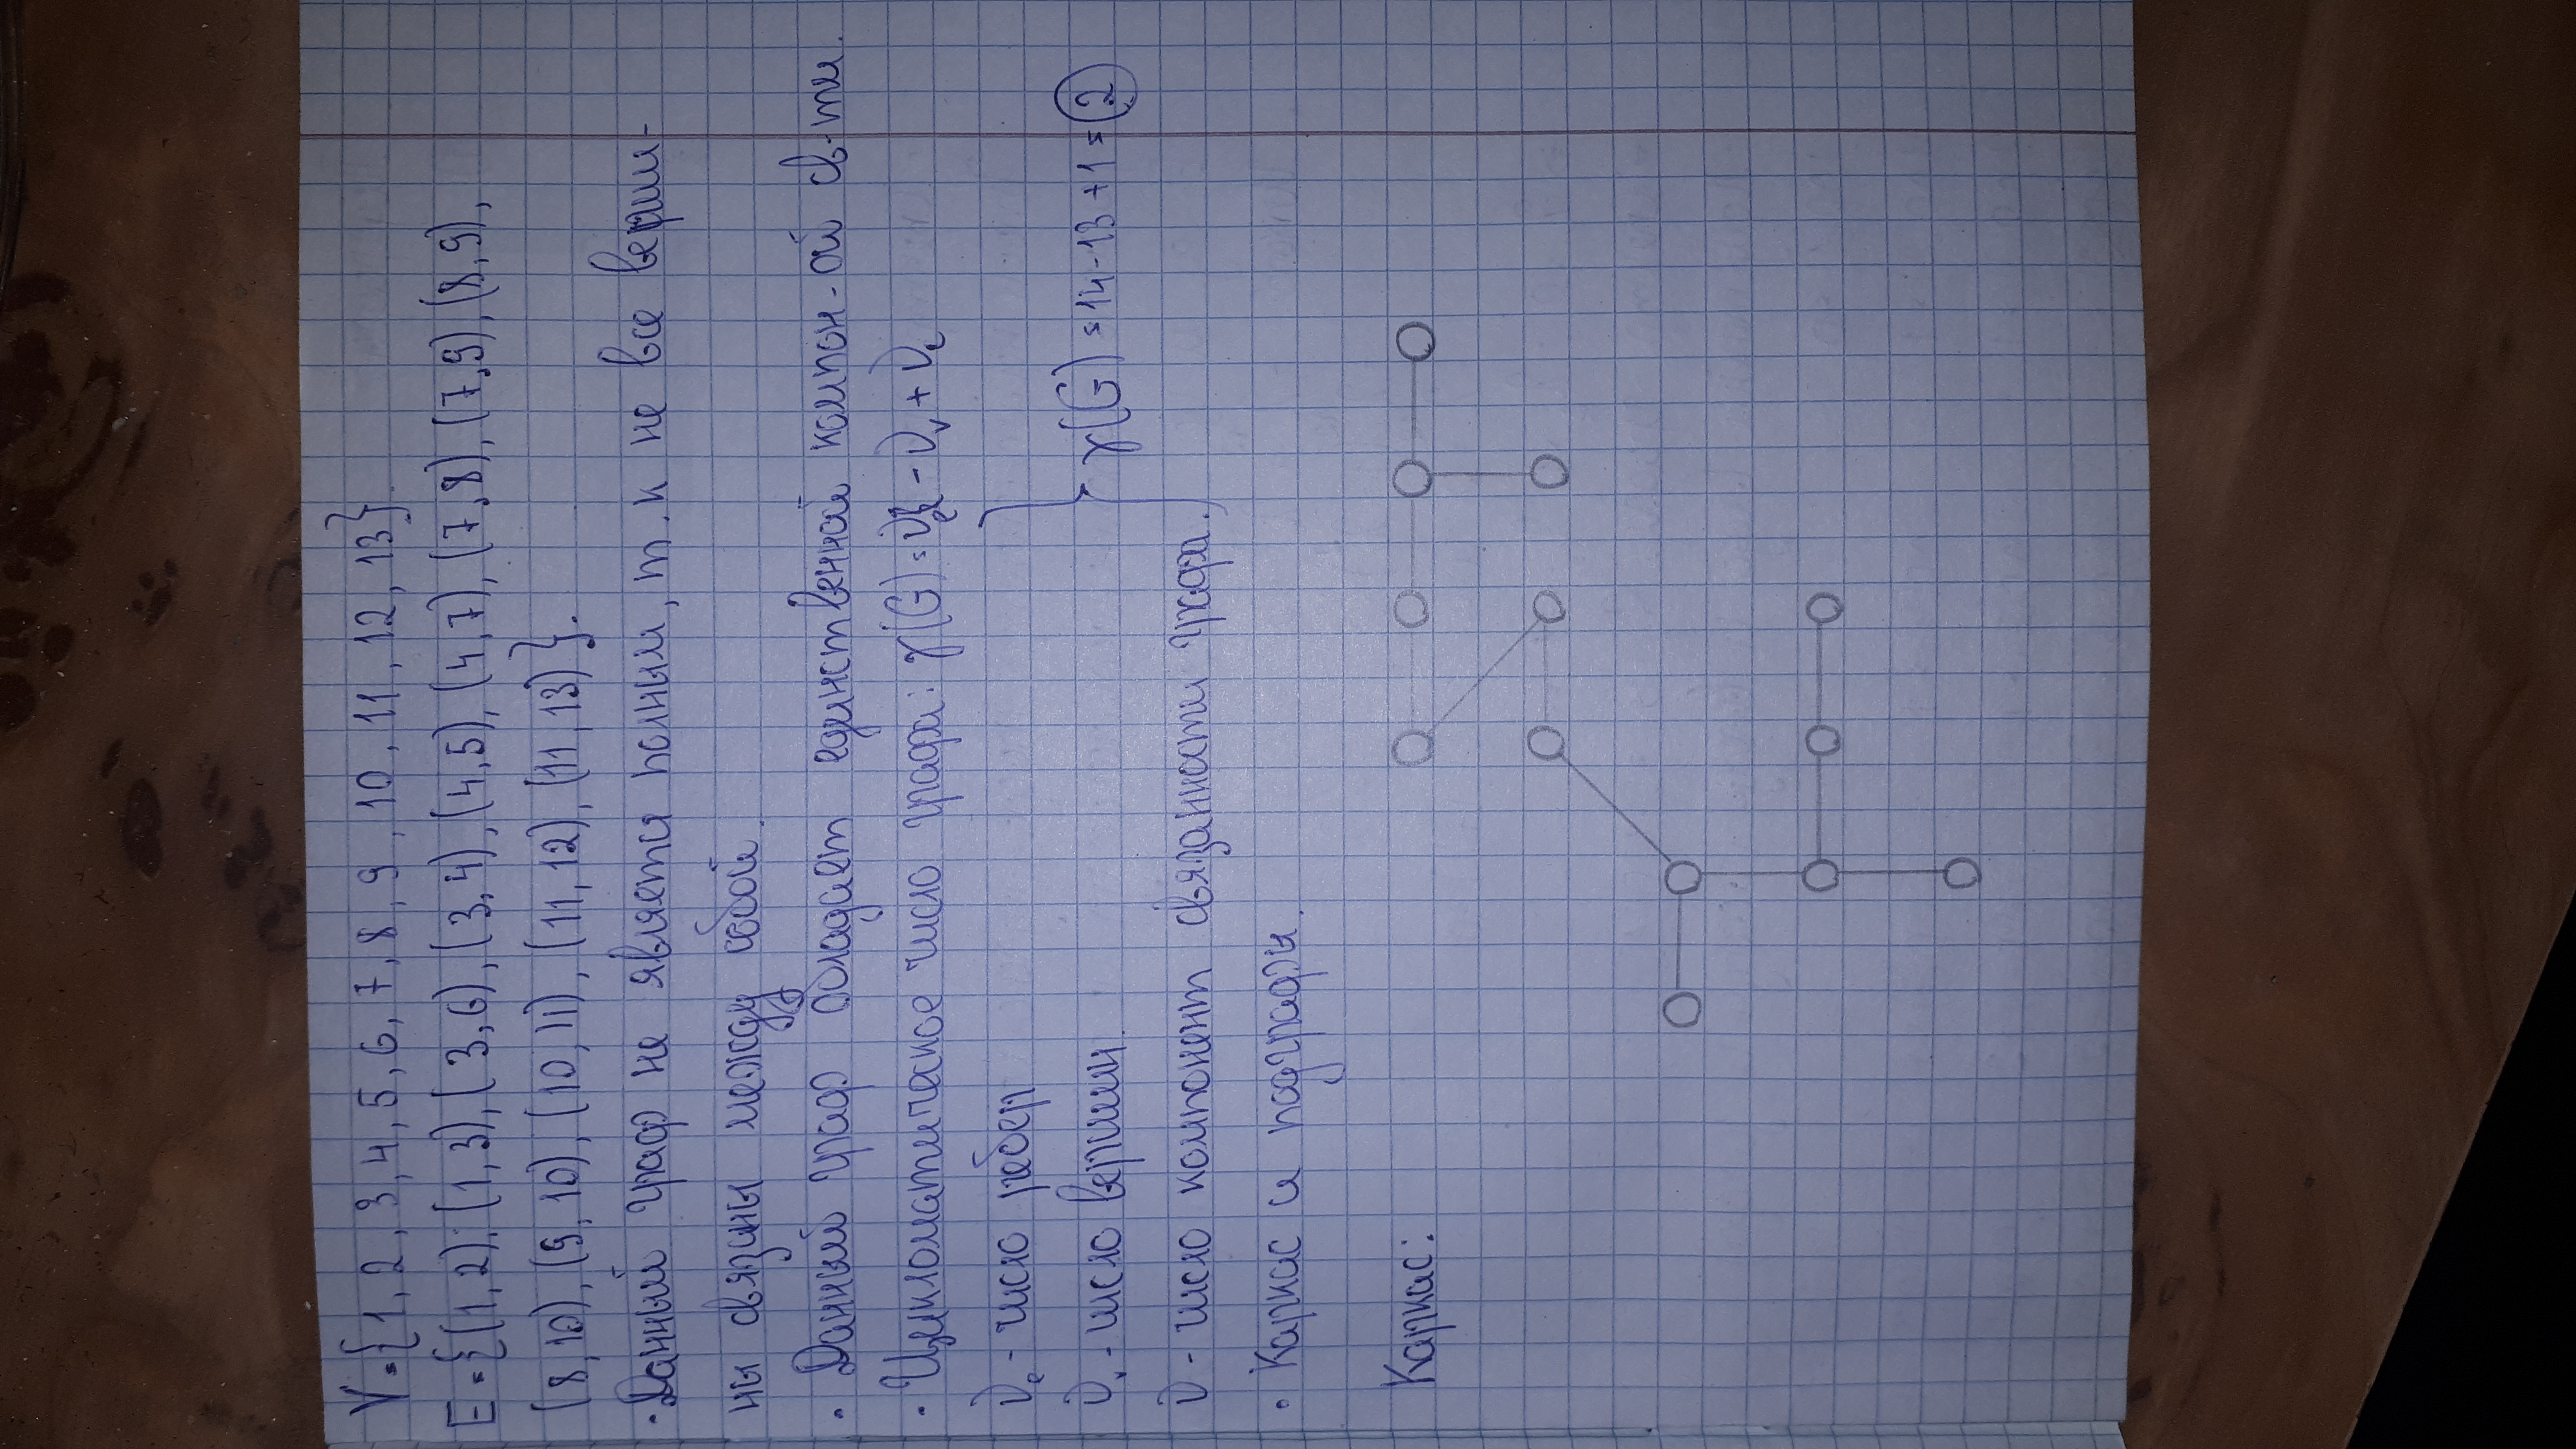 V={1, 2, 3, 4, 5, 6, 7, 8, 9, 10, 11, 12, 13}.
E={(1,2), (1,3), (3,6), (3,4), (4,5), (4,7), (7,8), (7,9), (8,9),
(8,10), (9,10), (10,11), (11,12), (11,13)}.
·Данный граф не является полным, т.к не все верши-
ны связаны между собой.
· Данный граф обладает единственной компон-ой св-ти.
· Цикломатическое число графа: γ(G)=νe - νv + νc
νe - число ребер
νv - число вершин.
γ(G) = 14-13+1 = 2
ν - число компонент связанности графа.
· Каркас и подграфы.
Каркас: